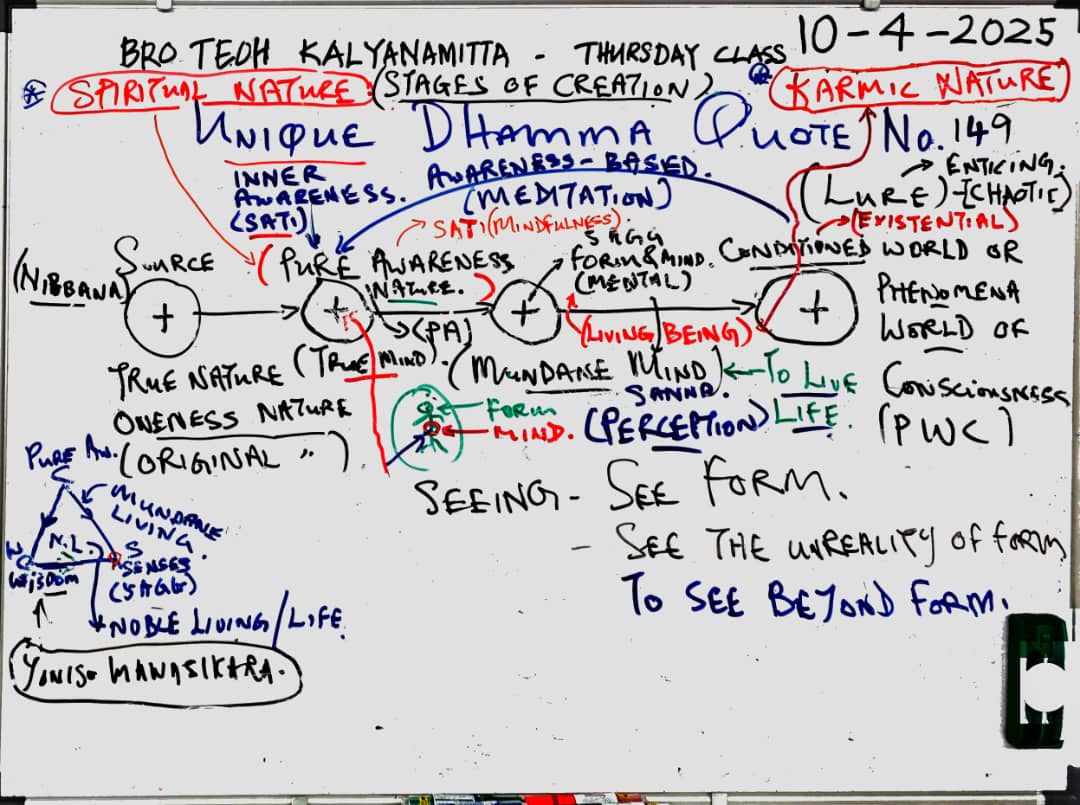 10-4-2025
BRO TEOH KALYANAMITTA - THURSDAY CLASS
SPIRITUAL NATURE (STAGES OF CREATION) KARMIC NATURE
UNIQUE DHAMMA QUOTE No. 149
INNER AWARENESS-BASED. ENTICING.
AWARENESS. (MEDITATION) (LURE) - (CHAOTIC)
(SATI) SATI (MINDFULNESS). (EXISTENTIAL)
SOURCE (PURE AWARENESS 5 AGG CONDITIONED WORLD OR
(NIBBANA) NATURE.) FORM & MIND. PHENOMENA
+ + + (MENTAL) +
(PA) (LIVING BEING) WORLD OF
TRUE NATURE (TRUE MIND). (MUNDANE MIND) TO LIVE CONSCIOUSNESS
ONENESS NATURE FORM SANNA. LIFE. (PWC)
(ORIGINAL ") MIND. (PERCEPTION)
PURE AW.
C MUNDANE SEEING - SEE FORM.
LIVING.
N.L. S - SEE THE UNREALITY OF FORM
W SENSES TO SEE BEYOND FORM.
WISDOM (5 AGG)
NOBLE LIVING/LIFE.
YONISO MANASIKARA.